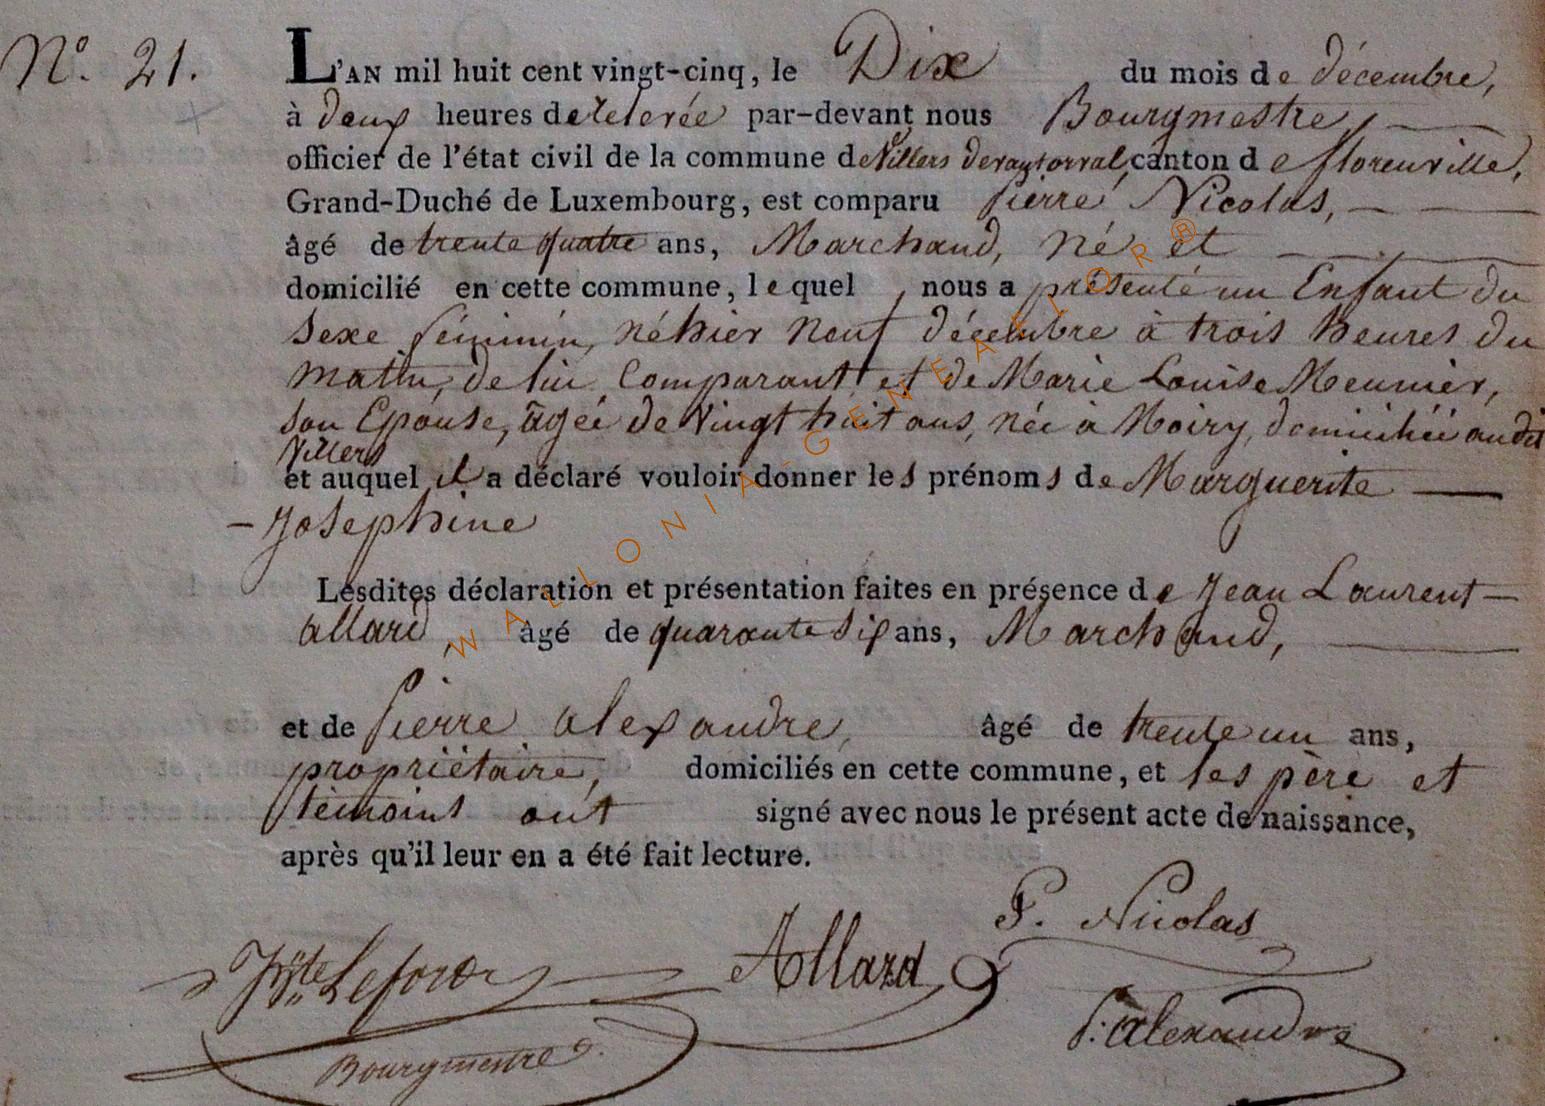 N.° 21.
L'AN mil huit cent vingt-cinq, le Dix du mois de décembre,
à deux heures de relevée par-devant nous Bourgmestre,
officier de l'état civil de la commune de Villers devant orval, canton de florenville,
Grand-Duché de Luxembourg, est comparu Pierre Nicolas,
âgé de trente quatre ans, Marchand, né et
domicilié en cette commune, lequel nous a présenté un Enfant du
sexe féminin, né hier neuf décembre à trois heures du
matin, de lui Comparant et de Marie Louise Meunier,
son Epouse, agée de vingt huit ans, née à Moiry, domiciliée audit
Villers
et auquel il a déclaré vouloir donner les prénoms de Marguerite
Josephine
Lesdites déclaration et présentation faites en présence de Jean Laurent
allard, âgé de quarante six ans, Marchand,
et de Pierre alexandre, âgé de trente un ans,
propriétaire, domiciliés en cette commune, et les père et
témoins ont signé avec nous le présent acte de naissance,
après qu'il leur en a été fait lecture.
P. Nicolas
Allard
P. alexandre
Bourgmestre
WALLONIA-GENEALOR®